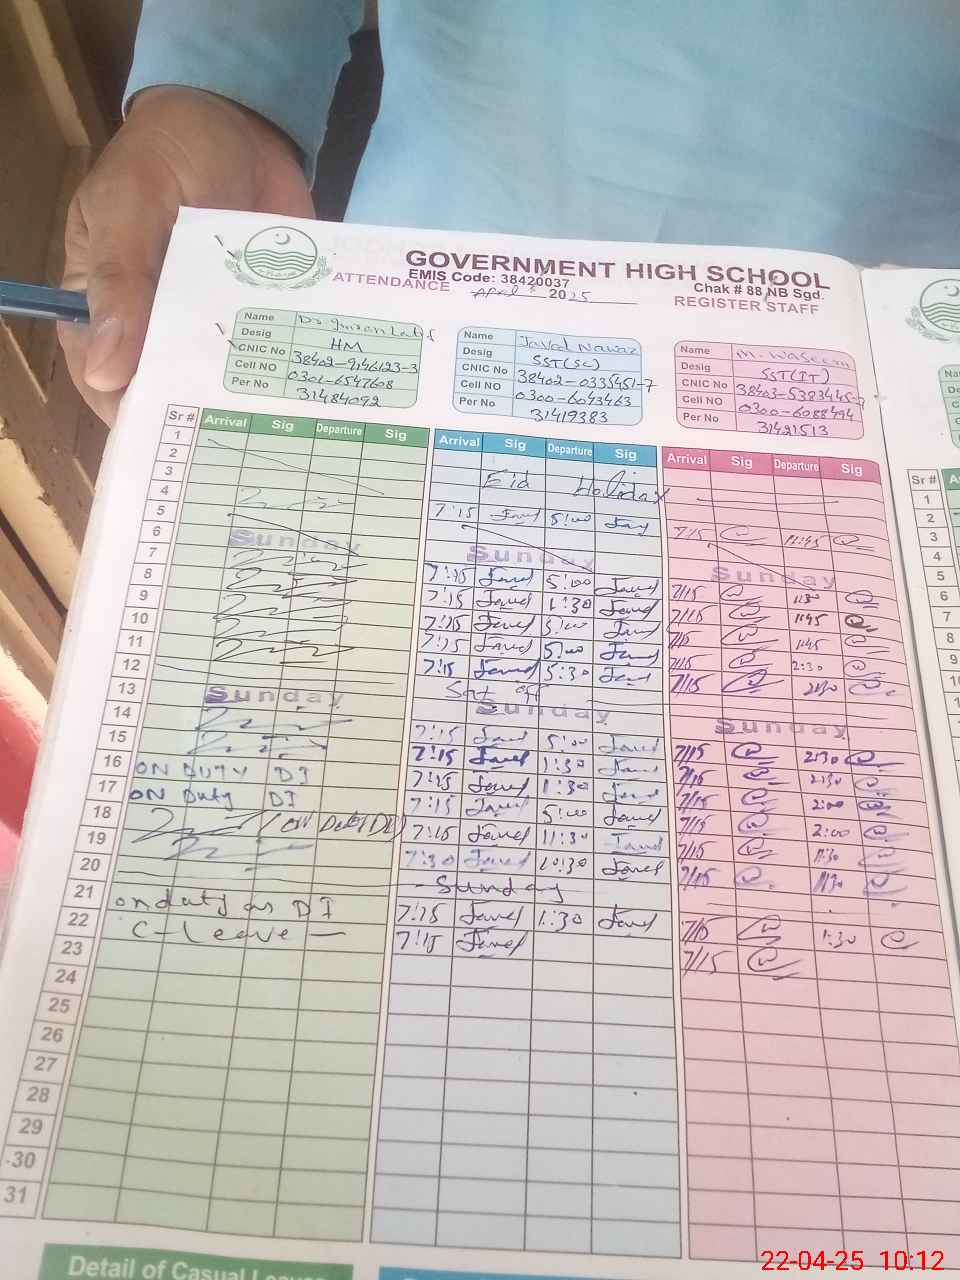 GOVERNMENT HIGH SCHOOL
EMIS Code: 38420037
Chak # 88 NB Sgd.
ATTENDANCE April 2025 REGISTER STAFF
Name
Desig HM
CNIC No 38402-9146123-3
Cell NO 0301-6547608
Per No 31484092
Name Javed Nawaz
Desig SST(SC)
CNIC No 38402-0335451-7
Cell NO 0300-6043463
Per No 31419383
Name M. Waseem
Desig SST(IT)
CNIC No 38403-5383445-
Cell NO 0300-6088494
Per No 31421513
Sr # Arrival Sig Departure Sig Arrival Sig Departure Sig Arrival Sig Departure Sig Sr #
1 1
2 Eid Holiday 2
3 3
4 7:15 Javed 5:00 Javed 7/15 11:45 4
5 5
6 Sunday Sunday Sunday 6
7 7:15 Javed 5:00 Javed 7/15 1:30 7
8 7:15 Javed 1:30 Javed 7/15 1:45 8
9 7:15 Javed 5:00 Javed 7/15 1:45 9
10 7:15 Javed 5:00 Javed 7/15 2:30
11 7:15 Javed 5:30 Javed 7/15 2:30
12 Sat off
13 Sunday Sunday Sunday
14 7:15 Javed 5:00 Javed 7/15 2:30
15 7:15 Javed 1:30 Javed 7/15 2:30
16 ON DUTY DI 7:15 Javed 1:30 Javed 7/15 2:00
17 ON Duty DI 7:15 Javed 5:00 Javed 7/15 2:00
18 7:15 Javed 11:30 Javed 7/15 11:30
19 7:30 Javed 10:30 Javed 7/15 11:30
20 Sunday
21 on duty as DI 7:15 Javed 1:30 Javed 7/15 1:30
22 C-Leave 7:15 Javed 7/15
23
24
25
26
27
28
29
30
31
Detail of Casual Leave
22-04-25 10:12